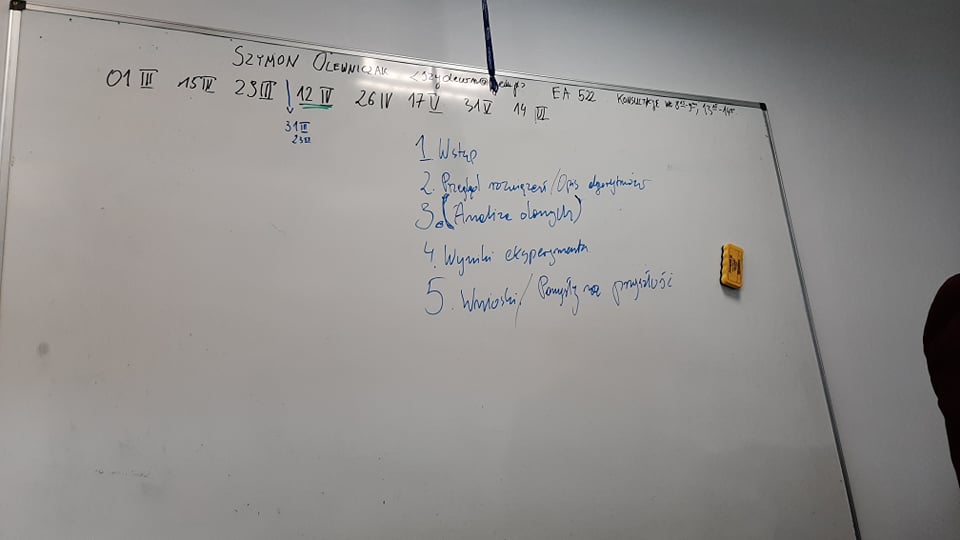 SZYMON OLEWNICZAK
EA 522 KONSULTACJE
01 III 15 III 29 III 12 IV 26 IV 17 V 31 V 14 VI
31 III
1 Wstęp
2. Przegląd rozwiązań/Opis algorytmów
3. (Analiza danych)
4. Wyniki eksperymentu
5. Wnioski / Pomysły na przyszłość